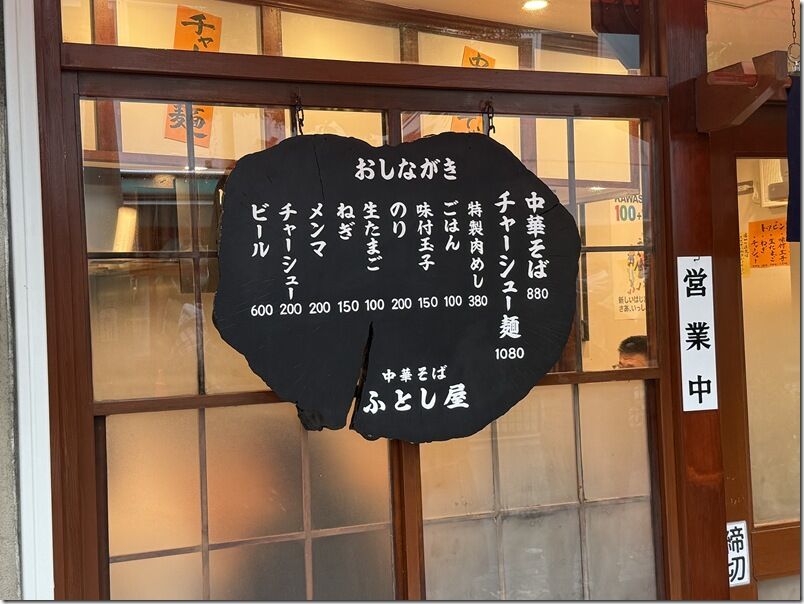 おしながき
中華そば 880
チャーシュー麺 1080
特製肉めし 380
ごはん 100
味付玉子 150
のり 200
生たまご 100
ねぎ 150
メンマ 200
チャーシュー 200
ビール 600
中華そば
ふとし屋
営業中
締切
麺
100+